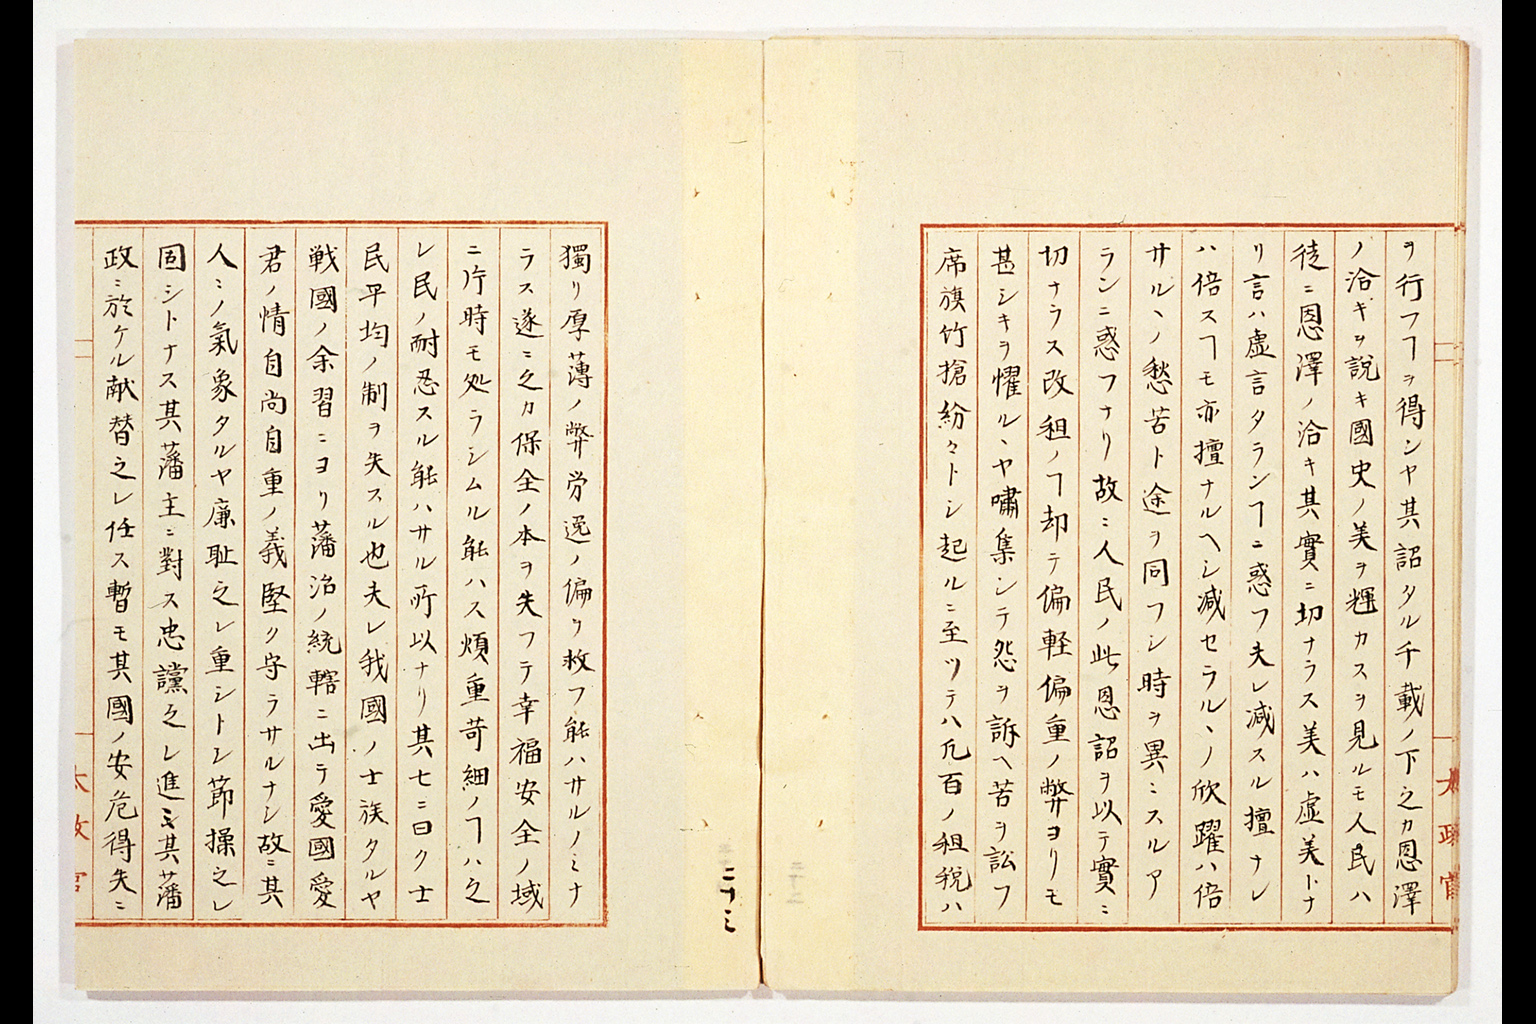 ヲ行フヿヲ得ンヤ其詔タル千載ノ下之カ恩澤
ノ洽キヲ説キ國史ノ美ヲ輝カスヲ見ルモ人民ハ
徒ニ恩澤ノ洽キ其實ニ切ナラス美ハ虚美トナ
リ言ハ虚言タランヿニ惑フ夫レ減スル擅ナレ
ハ倍スヿモ亦擅ナルヘシ減セラルヽノ欣躍ハ倍
サルヽノ愁苦ト途ヲ同フシ時ヲ異ニスルア
ランニ惑フナリ故ニ人民ノ此恩詔ヲ以テ實ニ
切ナラス改租ノヿ却テ偏軽偏重ノ弊ヨリモ
甚シキヲ懼ルヽヤ嘯集シテ怨ヲ訴ヘ苦ヲ訟フ
席旗竹搶紛々トシ起ルニ至ツテハ凡百ノ租税ハ
太政官
獨リ厚薄ノ弊労逸ノ偏ヲ救フ能ハサルノミナ
ラス遂ニ之カ保全ノ本ヲ失フテ幸福安全ノ域
ニ片時モ処ラシムル能ハス煩重苛細ノヿハ之
レ民ノ耐忍スル能ハサル所以ナリ其七ニ曰ク士
民平均ノ制ヲ失スル也夫レ我國ノ士族タルヤ
戦國ノ余習ニヨリ藩治ノ統轄ニ出テ愛國愛
君ノ情自尚自重ノ義堅ク守ラサルナシ故ニ其
人ミノ氣象タルヤ廉耻之レ重シトシ節操之レ
固シトナス其藩主ニ對ス忠讜之レ進ミ其藩
政ニ於ケル献替之レ任ス暫モ其國ノ安危得失ニ
太政官
二十三